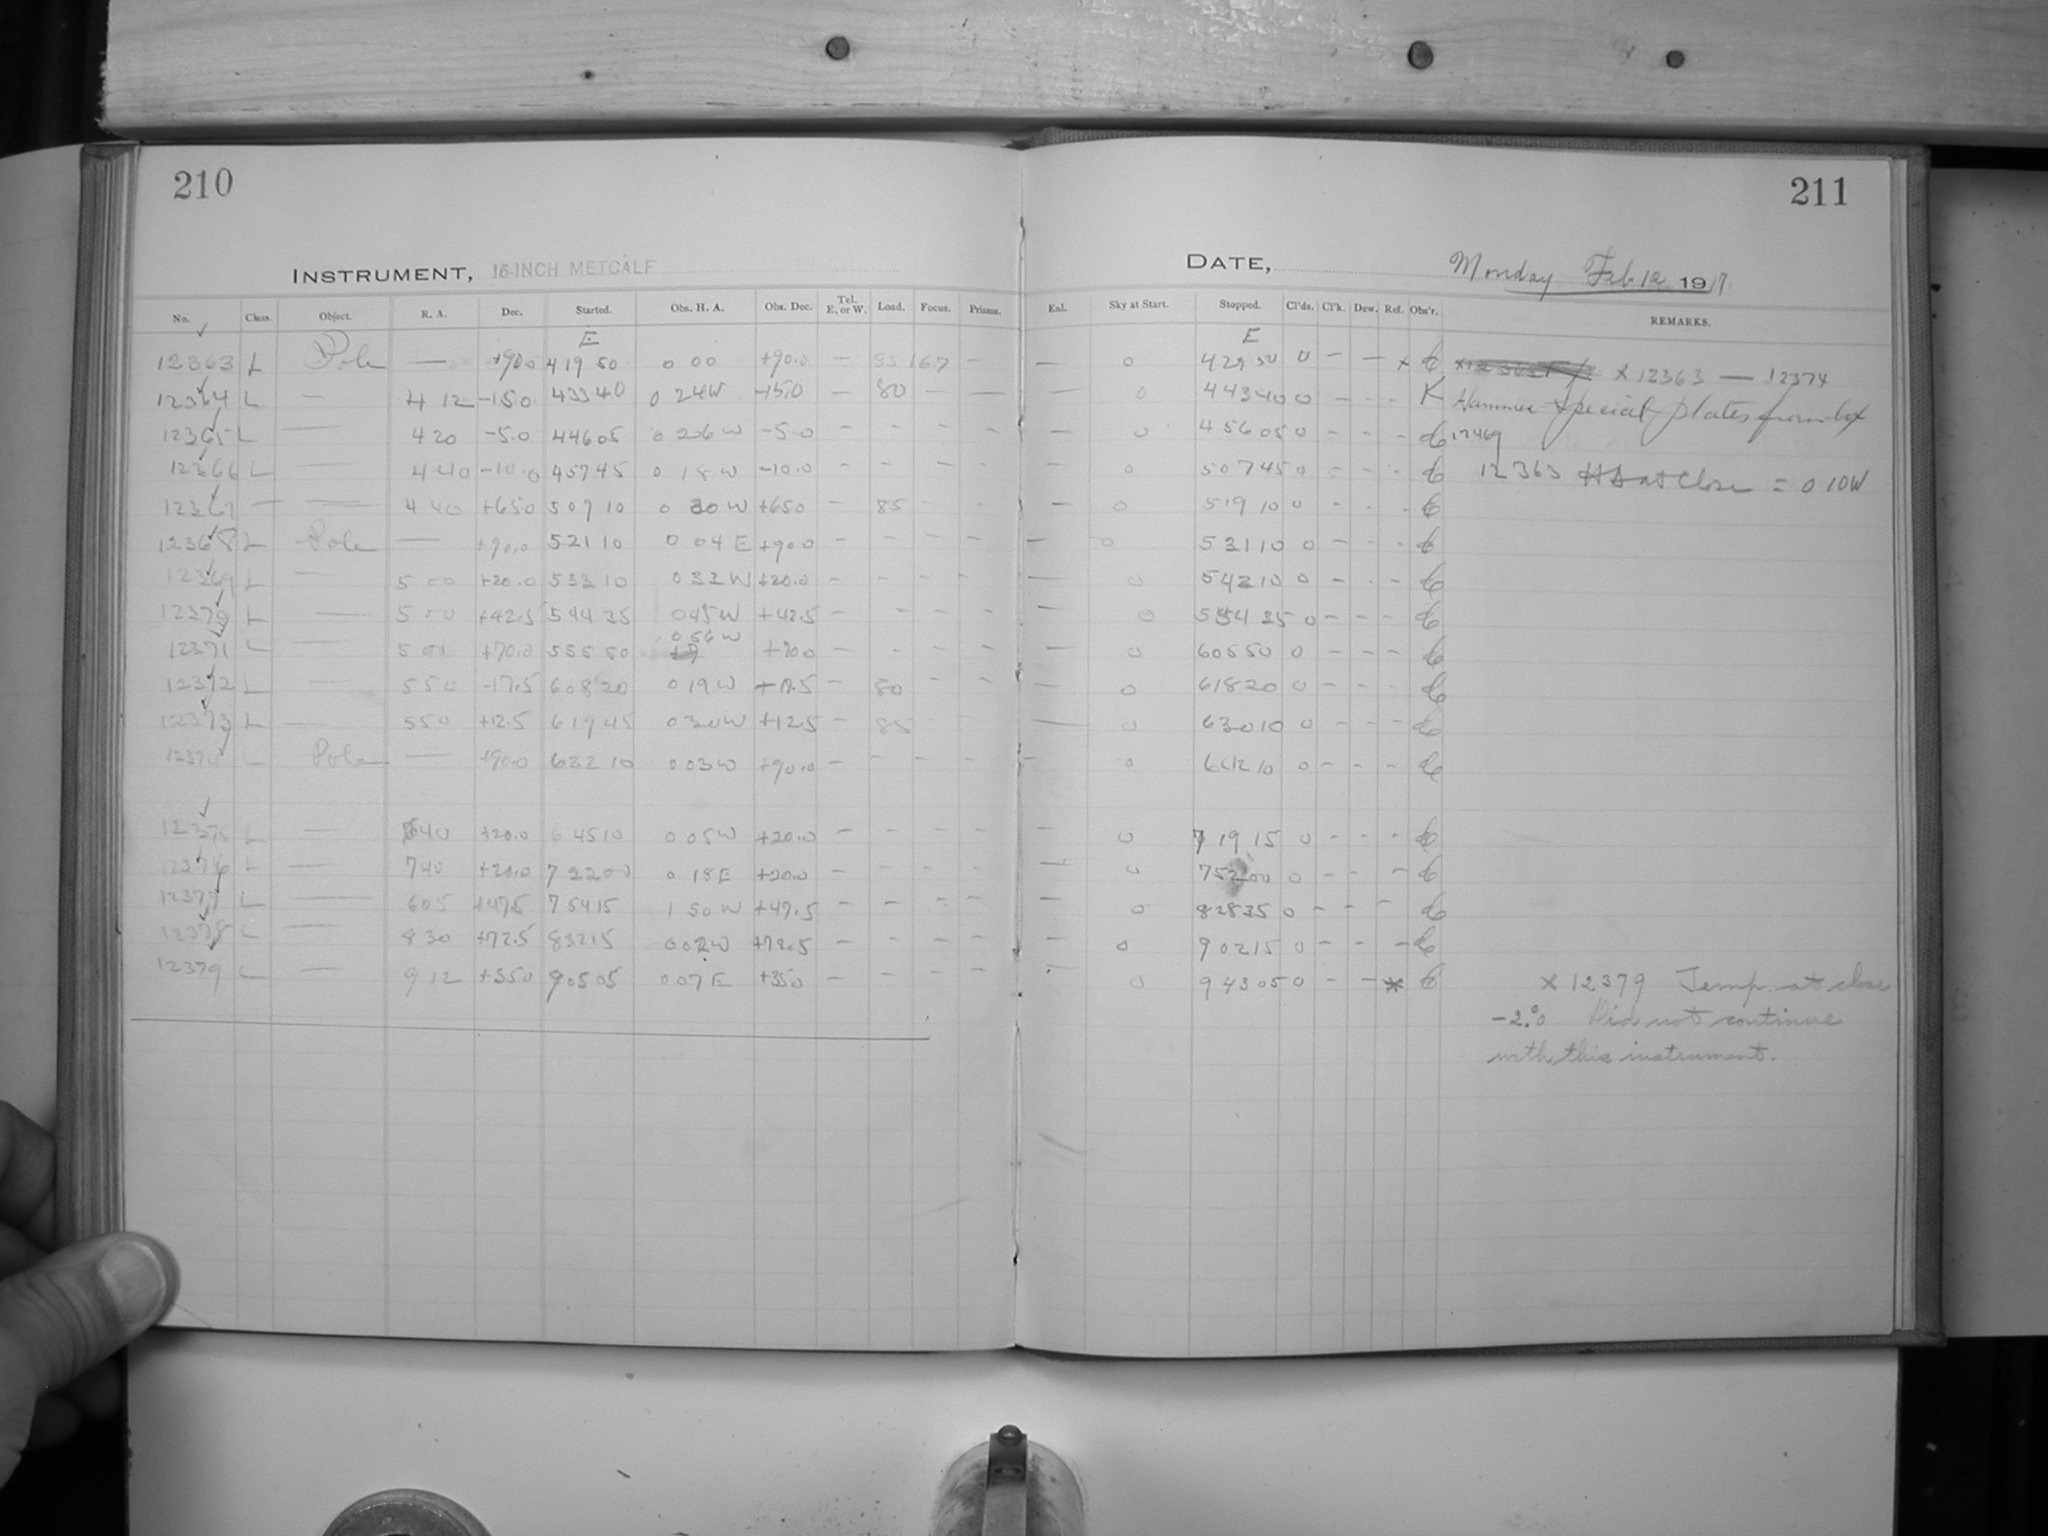 210
211
INSTRUMENT, 16-INCH METCALF
DATE, Monday Feb 12 1917
No. Class. Object. R. A. Dec. Started. Obs. H. A. Obs. Dec. Tel. E. or W. Load. Focus. Prisms. Eal. Sky at Start. Stopped. Cl'ds. Cl'k. Dew. Ref. Obs'r. REMARKS.
E E
12363 L Pole — +90.0 4 19 50 0 00 +90.0 – 85 16.7 – — 0 4 29 50 0 – – × C × 12363 — 12374
12364 L — 4 12 -15.0 4 33 40 0 24W -15.0 – 80 – — — 0 4 43 40 0 – - - K Hammer Special plates from box
12365 L — 4 20 -5.0 4 46 05 0 26 W -5.0 – – – – – — 0 4 56 05 0 – - - C 12469
12366 L — 4 40 -10.0 4 57 45 0 18 W -10.0 – – – – – — 0 5 07 45 0 – - - C 12363 HA at Close = 0 10W
12367 — — 4 40 +65.0 5 09 10 0 30 W +65.0 – 85 - - — 0 5 19 10 0 - - - C
12368 L Pole — +90.0 5 21 10 0 04 E +90.0 – – – – – — 0 5 31 10 0 – - - C
12369 L — 5 00 +20.0 5 33 10 0 33 W +20.0 – – – – — 0 5 43 10 0 – - - C
12370 L — 5 00 +42.5 5 44 35 0 45 W +42.5 – – – – — 0 5 54 35 0 – – – C
12371 L — 5 00 +70.0 5 55 50 0 56 W +70.0 – – – – – — 0 6 05 50 0 – – – C
12372 L — 5 50 -17.5 6 08 20 0 19 W -17.5 – 80 - - — 0 6 18 20 0 – - - C
12373 L — 5 50 +12.5 6 19 45 0 30W +12.5 – 85 - - — 0 6 30 10 0 – – – C
12374 L Pole — +90.0 6 32 10 0 03 W +90.0 – – – – – — 0 6 42 10 0 – – – C
12375 L — 6 40 +20.0 6 45 10 0 05 W +20.0 – – – – – — 0 7 19 15 0 – - – C
12376 L — 7 40 +20.0 7 22 00 0 18 E +20.0 – – – – – — 0 7 52 00 0 – – – C
12377 L — 6 05 +47.5 7 54 15 1 50 W +47.5 – – – – – — 0 8 28 35 0 – – – C
12378 L — 8 30 +72.5 8 32 15 0 02 W +72.5 – – – – – — 0 9 02 15 0 – – – C
12379 L — 9 12 +35.0 9 05 05 0 07 E +35.0 – – – – – 0 9 43 05 0 – – * C × 12379 Temp. at close
-2.°0 Did not continue
with this instrument.